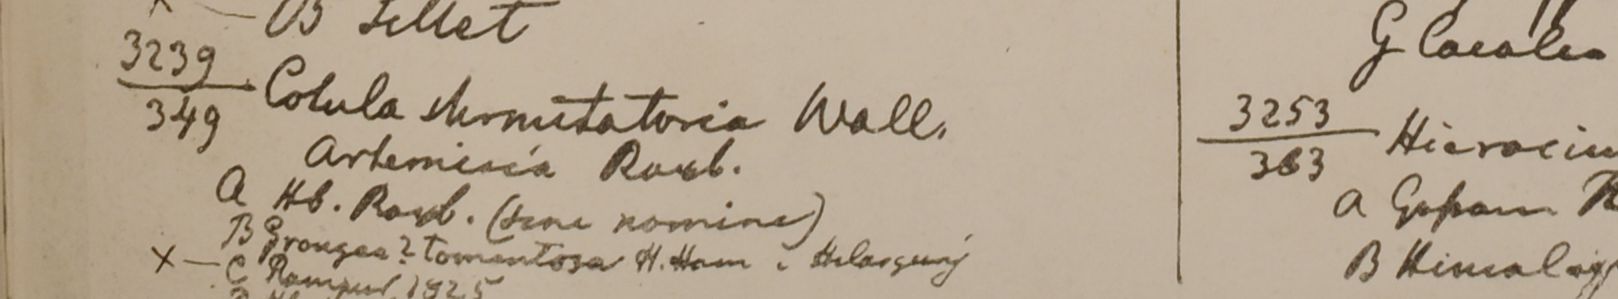 B Sillet
3239
349
Cotula sternutatoria Wall.
Artemisia Roxb.
A Hb. Roxb. (sine nomine)
B Grangea? tomentosa H. Ham
× — C Rampur 1825
G
3253
363
Hieraciu
A
B Himalay